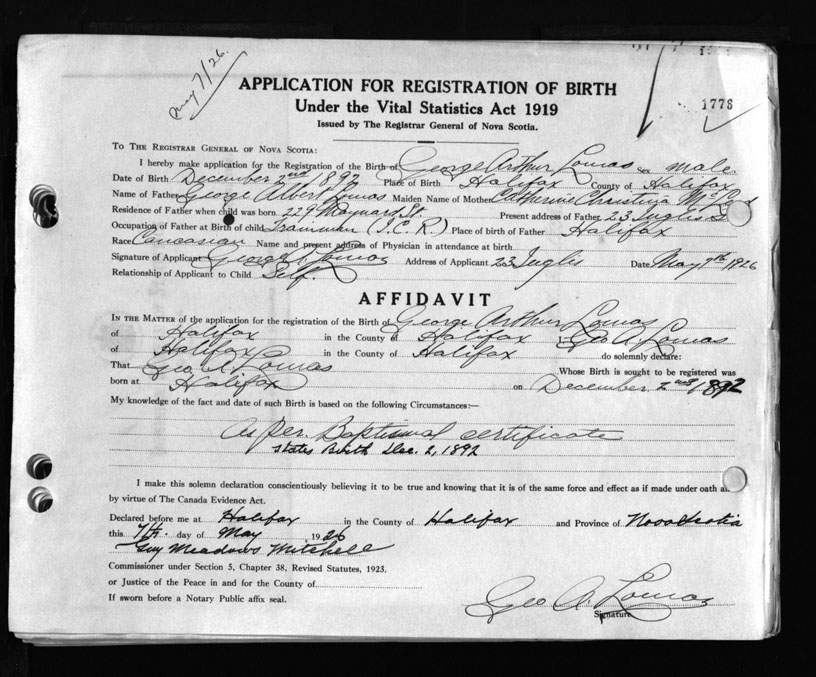 May 7/26.
1778
APPLICATION FOR REGISTRATION OF BIRTH
Under the Vital Statistics Act 1919
Issued by The Registrar General of Nova Scotia.
TO THE REGISTRAR GENERAL OF NOVA SCOTIA:
I hereby make application for the Registration of the Birth of George Arthur Lomas Sex male.
Date of Birth December 2nd 1892 Place of Birth Halifax County of Halifax
Name of Father George Albert Lomas Maiden Name of Mother Catherine Christina
Residence of Father when child was born 229 Maynard St. Present address of Father 23 Inglis S
Occupation of Father at Birth of child Trainman (I.C.R.) Place of birth of Father Halifax
Race Caucasian Name and present address of Physician in attendance at birth
Signature of Applicant George A Lomas Address of Applicant 23 Inglis Date May 7th 1926
Relationship of Applicant to Child Self.
AFFIDAVIT
IN THE MATTER of the application for the registration of the Birth of George Arthur Lomas
of Halifax in the County of Halifax I, Geo A. Lomas
of Halifax in the County of Halifax do solemnly declare:
That Geo A. Lomas Whose Birth is sought to be registered was
born at Halifax on December 2nd 1892
My knowledge of the fact and date of such Birth is based on the following Circumstances:—
As per. Baptismal certificate
states Birth Dec. 2, 1892
I make this solemn declaration conscientiously believing it to be true and knowing that it is of the same force and effect as if made under oath a
by virtue of The Canada Evidence Act.
Declared before me at Halifax in the County of Halifax and Province of Nova Scotia
this 7th. day of May 1926
Guy Meadows Mitchell
Commissioner under Section 5, Chapter 38, Revised Statutes, 1923.
or Justice of the Peace in and for the County of
If sworn before a Notary Public affix seal.
Geo A. Lomas
Signature